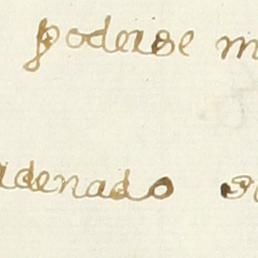 poderse m
denado